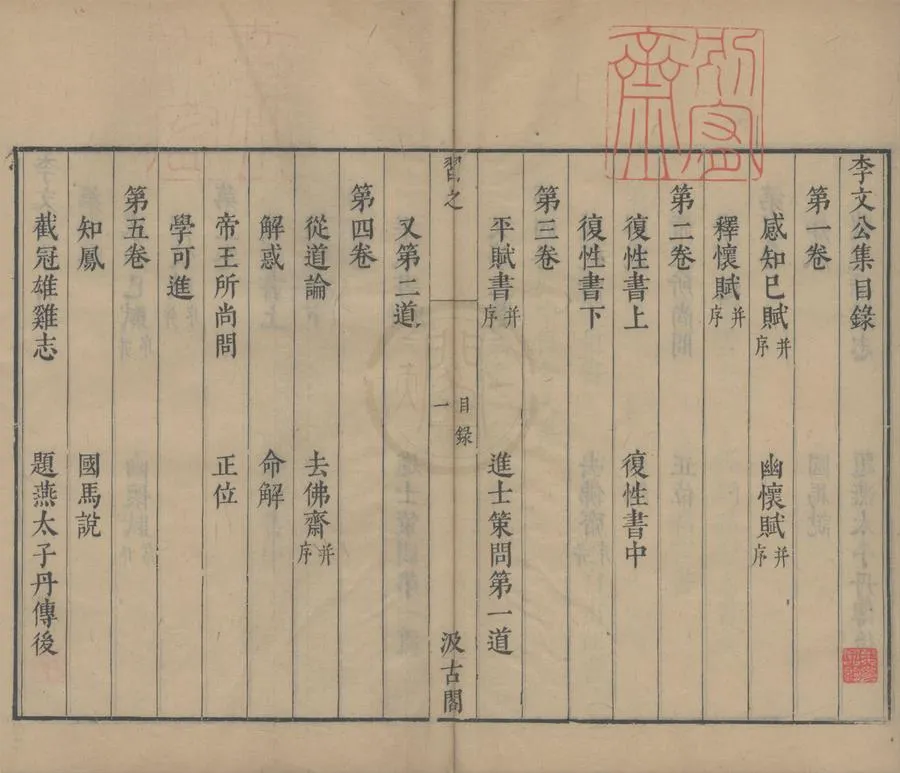 李文公集目錄
第一卷
感知己賦并序　幽懷賦并序
釋懷賦并序
第二卷
復性書上　復性書中
復性書下
第三卷
平賦書并序　進士策問第一道
習之　目錄　一　汲古閣
又第二道
第四卷
從道論　去佛齋并序
解惑　命解
帝王所尚問　正位
學可進
第五卷
知鳳　國馬說
截冠雄雞志　題燕太子丹傳後